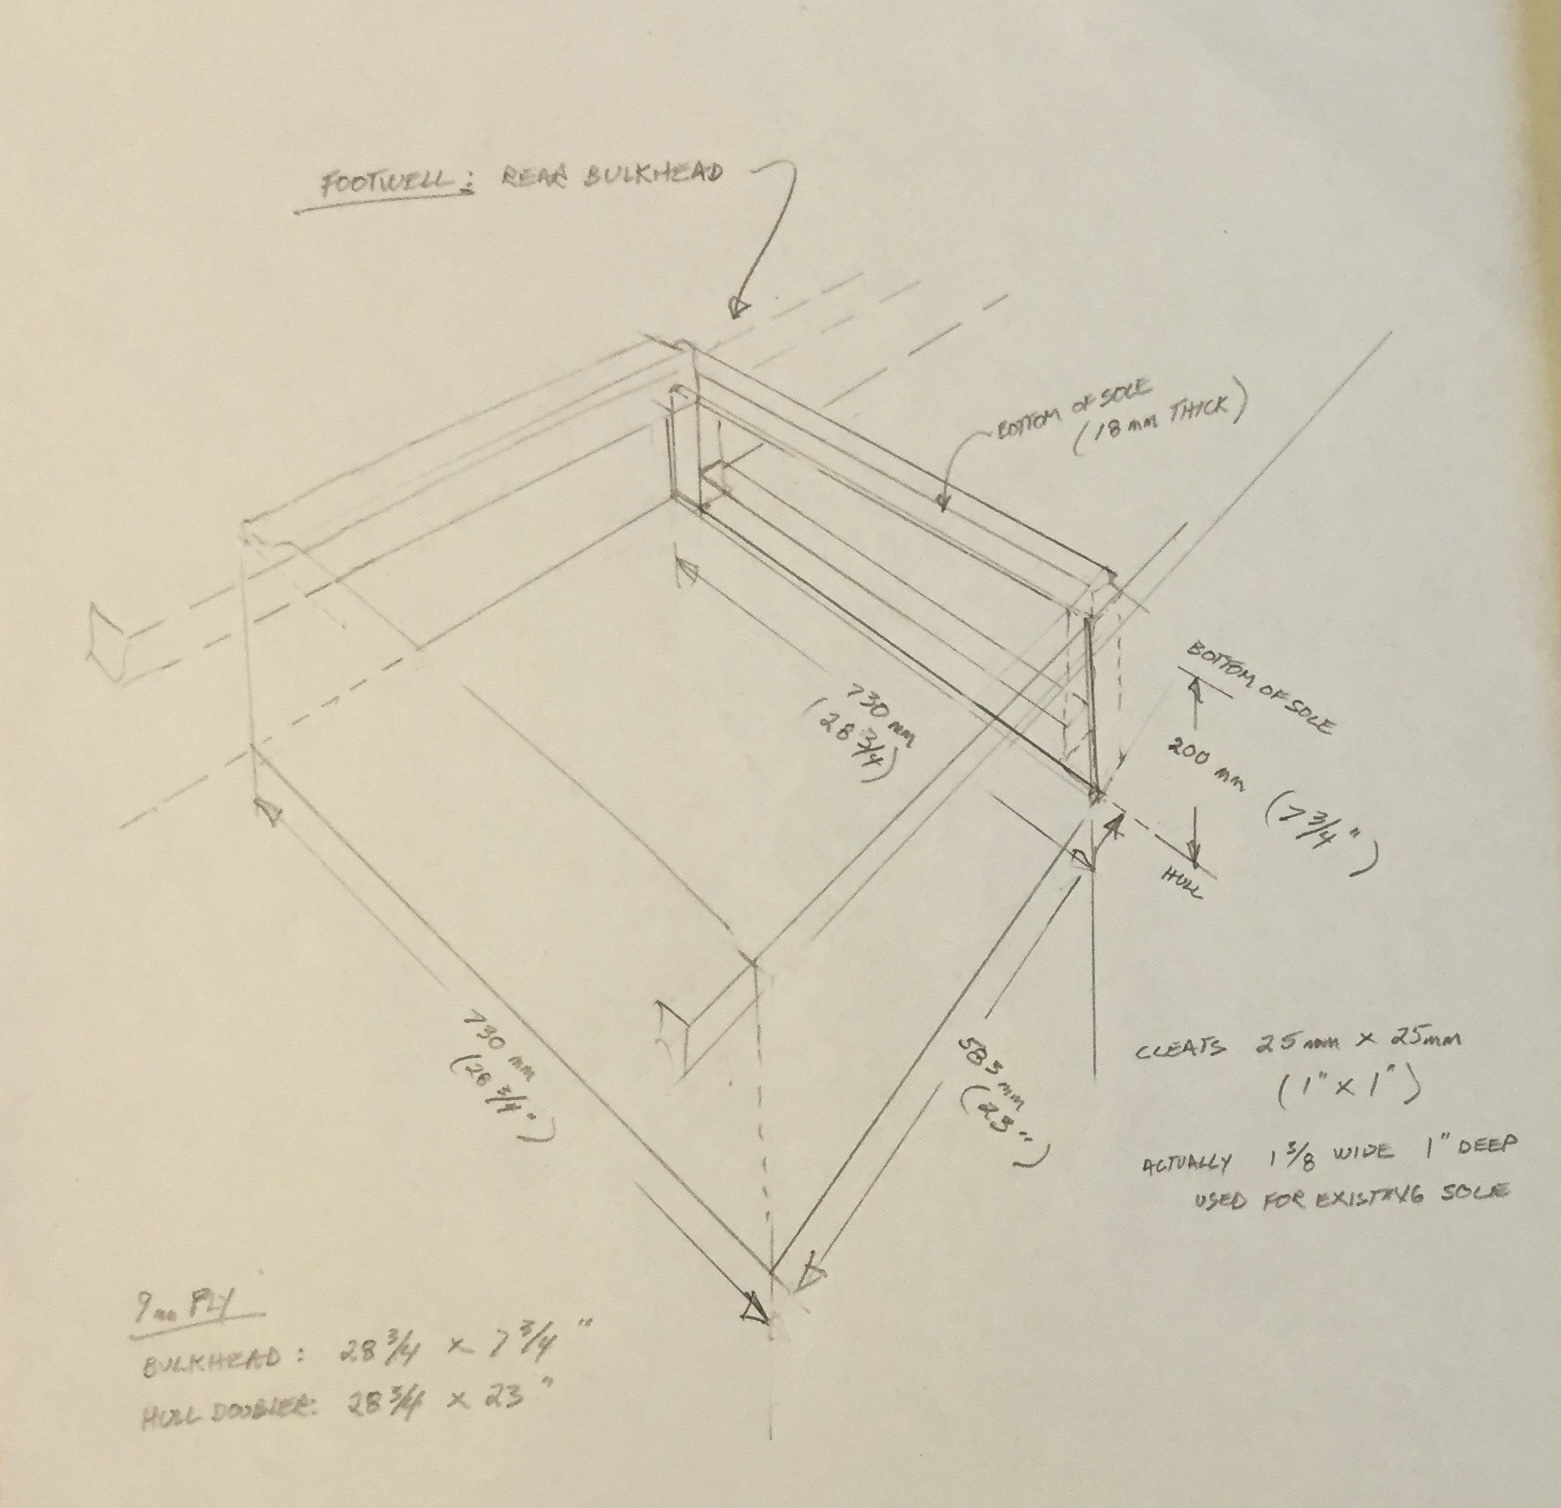 FOOTWELL: REAR BULKHEAD
BOTTOM OF SOLE
(18 mm THICK)
BOTTOM OF SOLE
200 mm (7 3/4")
HULL
730 mm
(28 3/4)
730 mm
(28 3/4")
583 mm
(23")
CLEATS 25mm x 25mm
(1" x 1")
ACTUALLY 1 3/8 WIDE 1" DEEP
USED FOR EXISTING SOLE
9mm PLY
BULKHEAD: 28 3/4 x 7 3/4"
HULL DOUBLER: 28 3/4 x 23"